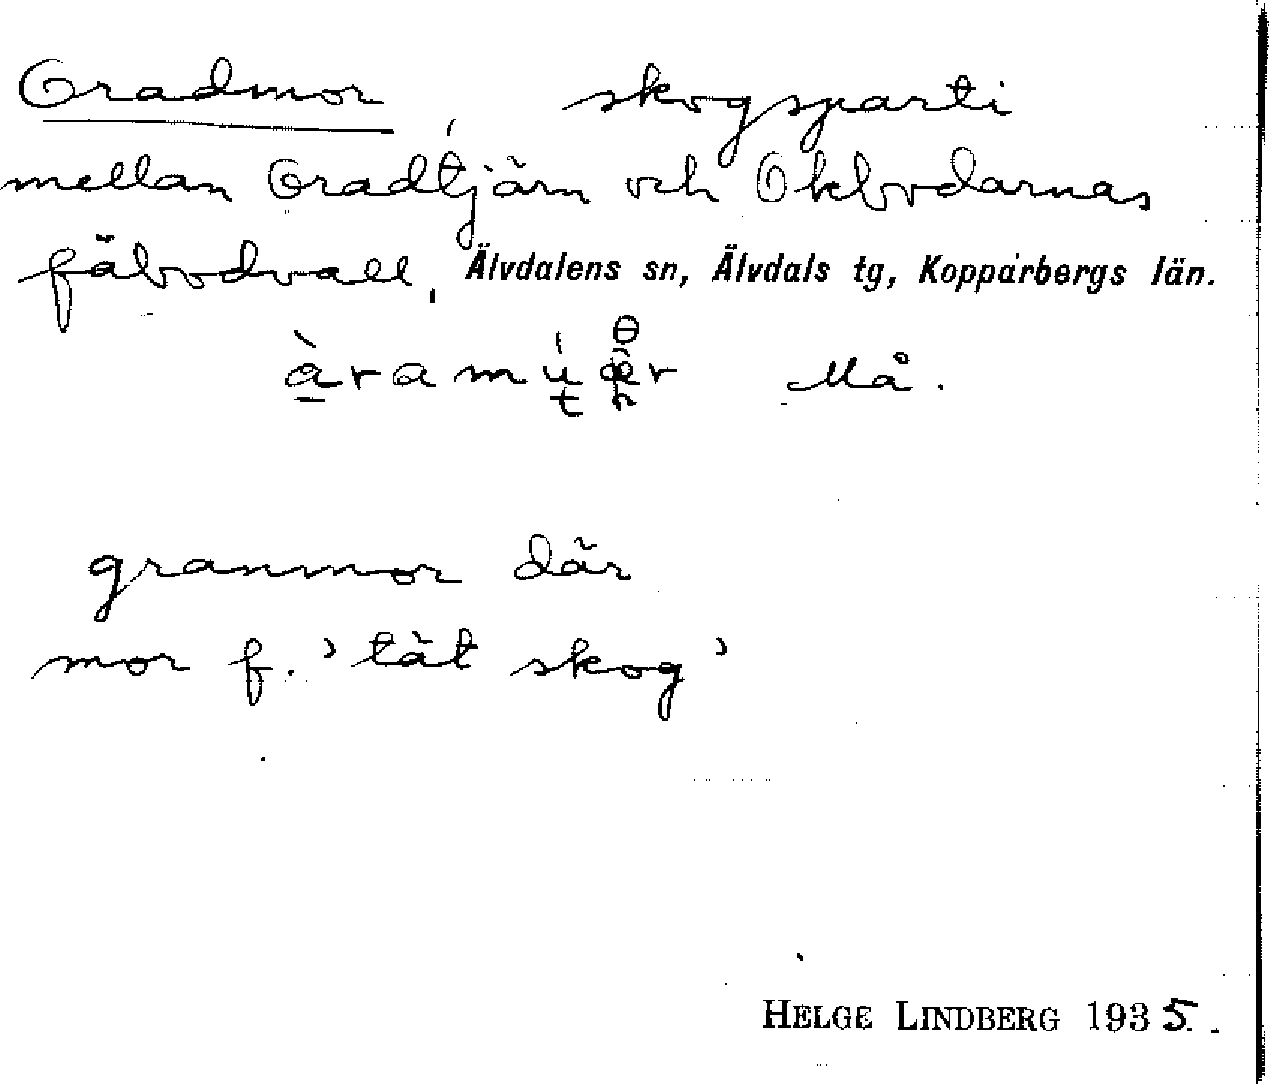 Oradmor, skogsparti
mellan Oradtjärn och Okbodarnas
fäbodvall, Älvdalens sn, Älvdals tg, Kopparbergs län.
Må.
granmor där
mor f. 'tät skog'
HELGE LINDBERG 1935.